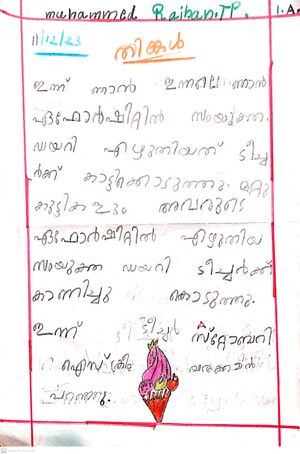 muhammed Raihan.TP. 1.A
11/12/23
തിങ്കൾ
ഇന്ന് ഞാൻ ഇന്നലെ ഞാൻ
ഏഫോർഷീറ്റിൽ സംയുക്ത
ഡയറി എഴുതിയത് ടീച്ച
ർക്ക് കാട്ടിക്കൊടുത്തു. മറ്റു
കുട്ടികളും അവരുടെ
ഏഫോർഷീറ്റിൽ എഴുതിയ
സംയുക്ത ഡയറി ടീച്ചർക്ക്
കാന്നിച്ചു കൊടുത്തു.
ഇന്ന് ടീച്ചർ സ്റ്റോബറി
ഐസ്ക്രീം വരക്കാൻ
പറഞ്ഞു.